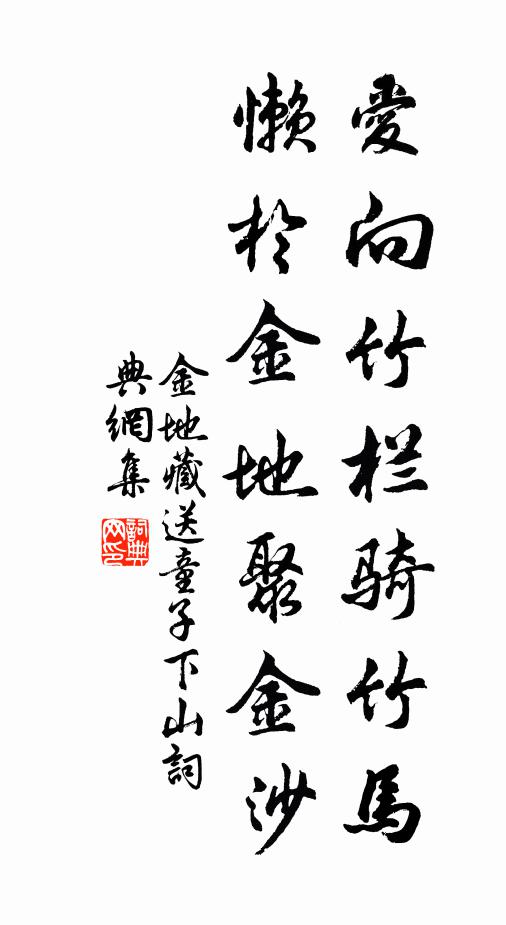 愛向竹栏骑竹馬
懒於金地聚金沙
金地藏送童子下山詞
典網集
詞典网印